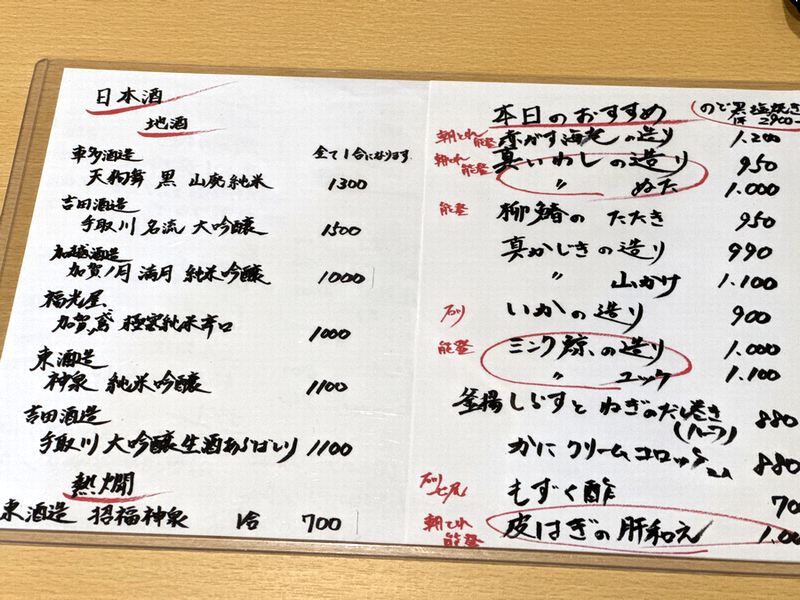 日本酒
地酒
車多酒造 全て1合になります
天狗舞 黒 山廃純米 1300
吉田酒造
手取川 名流 大吟醸 1500
加越酒造
加賀ノ月 満月 純米吟醸 1000
福光屋
加賀鳶 極寒純米辛口 1000
東酒造
神泉 純米吟醸 1100
吉田酒造
手取川 大吟醸生酒あらばしり 1100
熱燗
東酒造 招福神泉 1合 700
本日のおすすめ
のど黒塩焼き
2900-
朝とれ 能登 赤がす海老の造り 1.200
朝とれ 能登 真いわしの造り 950
〃 ぬた 1.000
能登 柳鰆の たたき 950
真かじきの造り 990
〃 山かけ 1.100
いかの造り 900
能登 ミンク鯨の造り 1.000
〃 ユッケ 1.100
釜揚しらすとねぎのだし巻き 880
(ハーフ)
かにクリームコロッケ 880
七尾 もずく酢 70
朝とれ 能登 皮はぎの肝和え 1.00